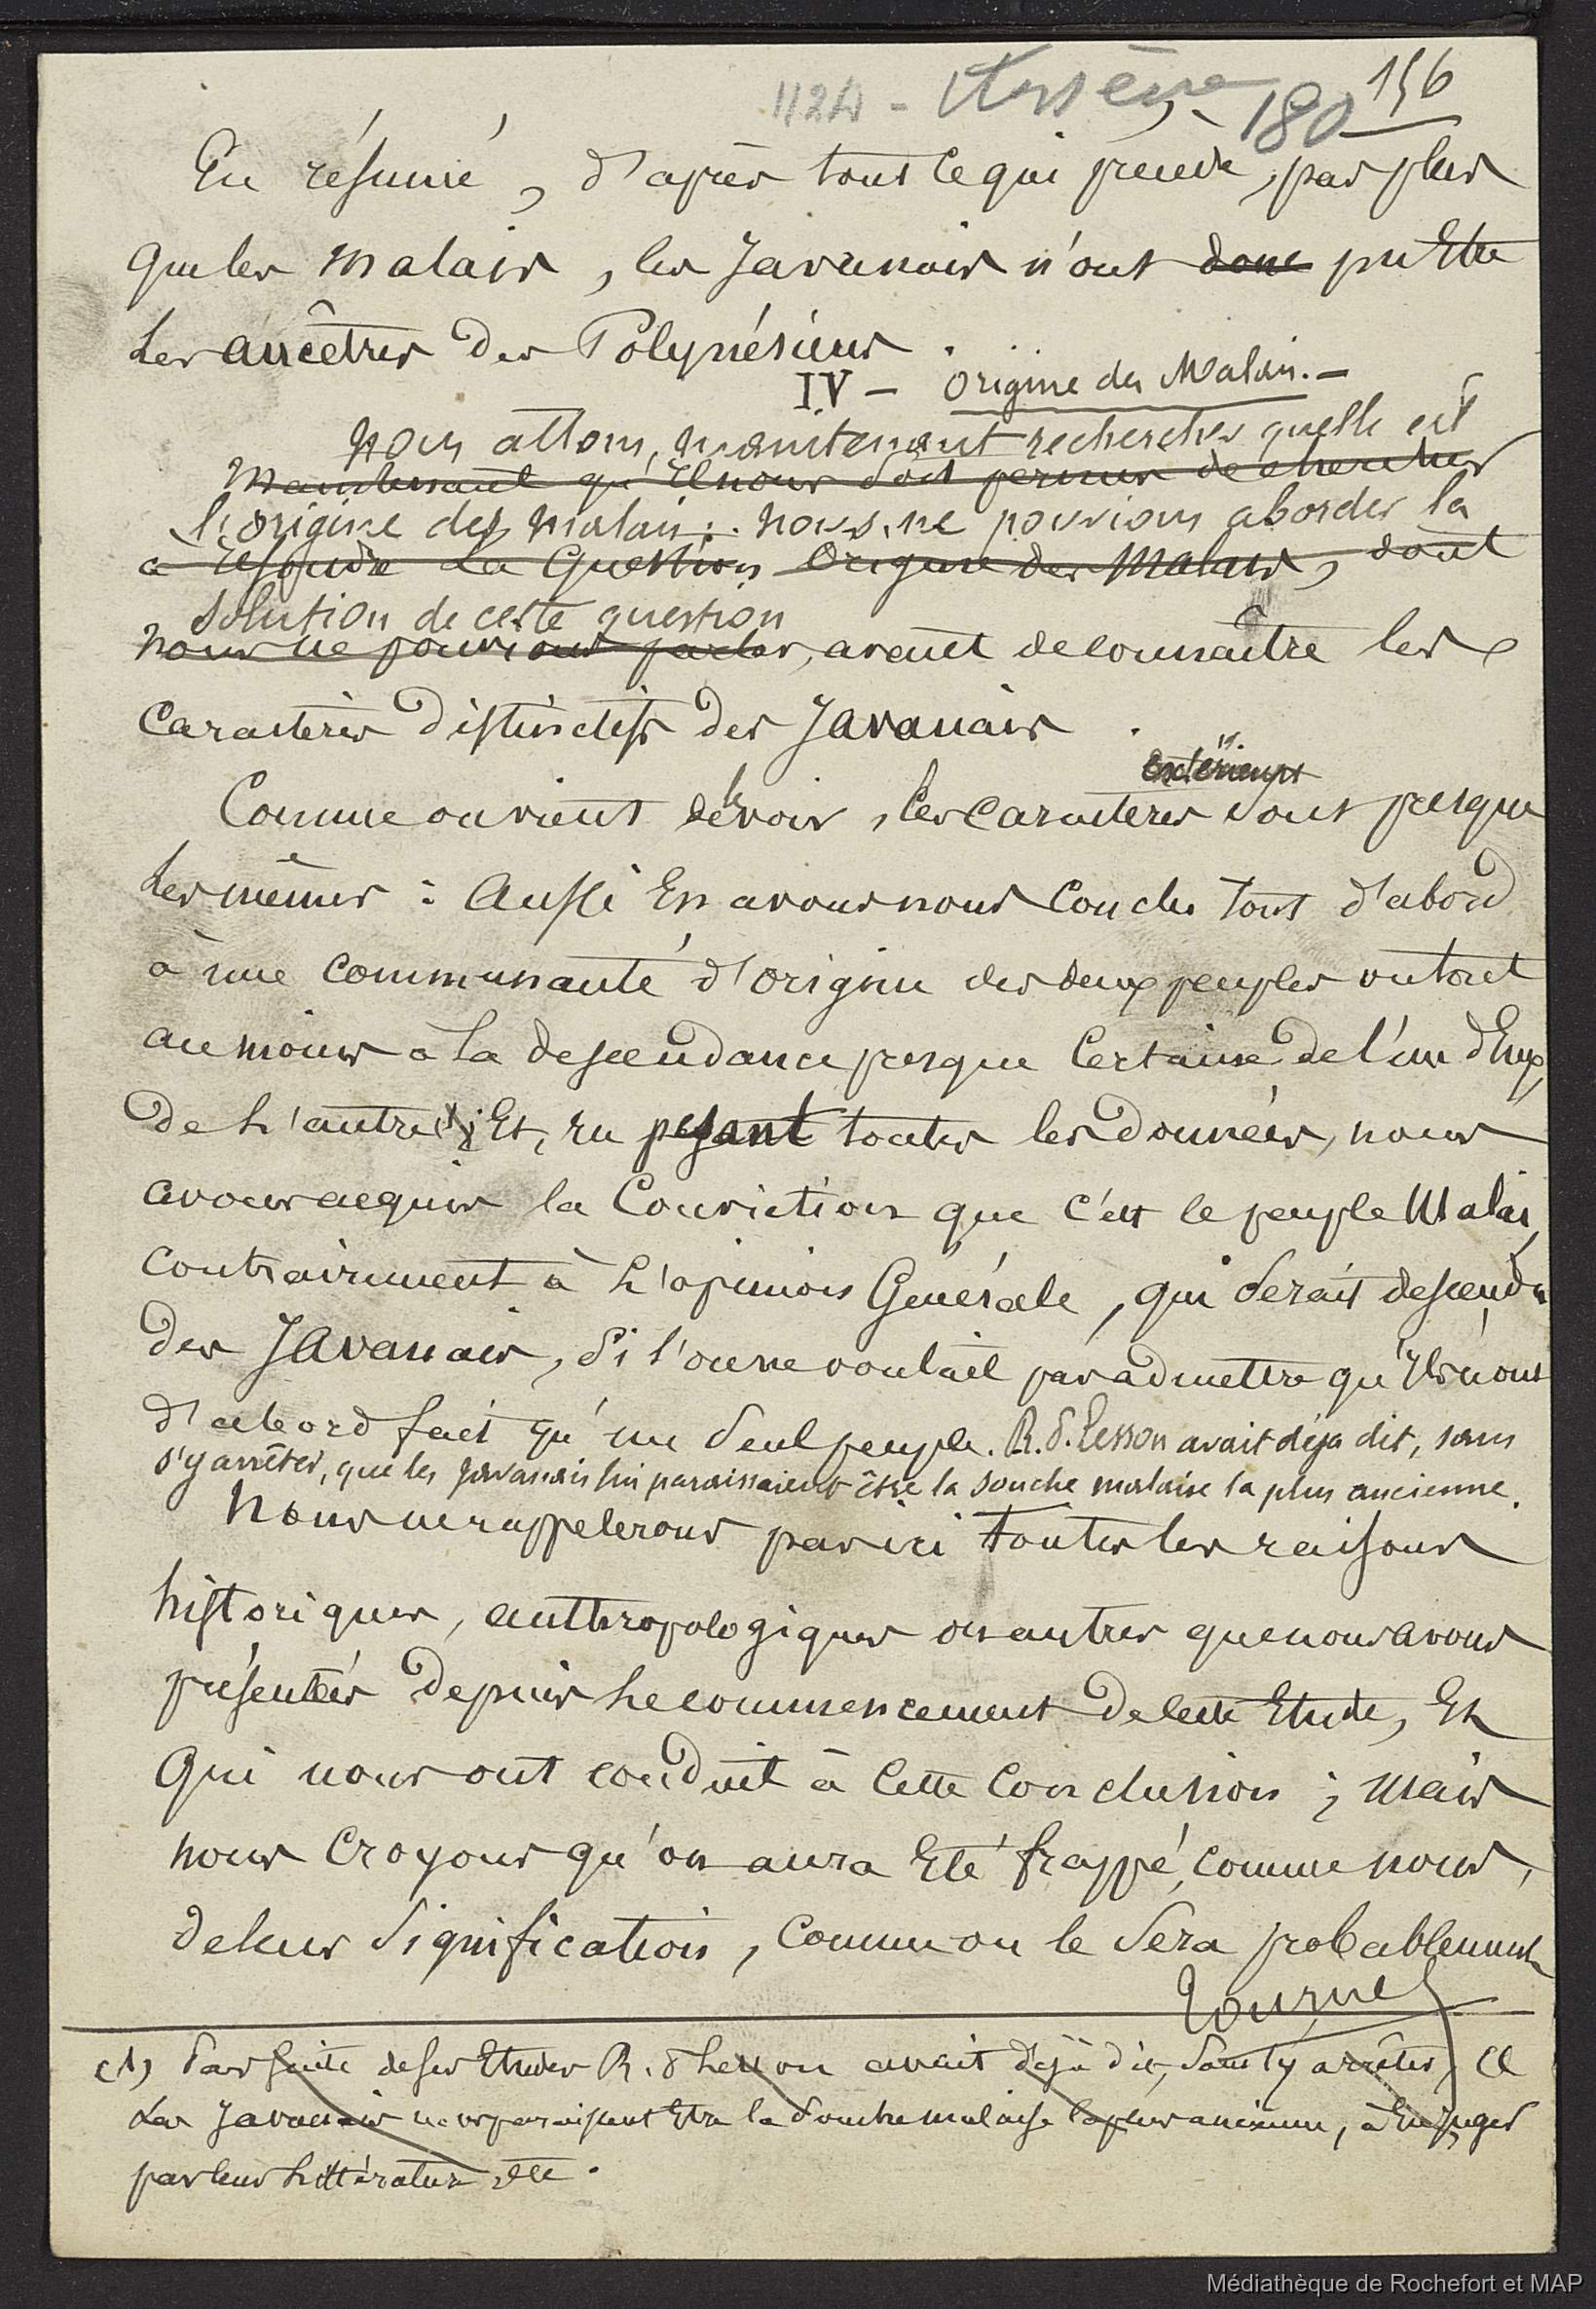 1124 - Arsène 180 156
En résumé, d'après tout ce qui précède, pas plus
que les Malais, les Javanais n'ont donc pu Etre
les ancêtres des Polynésiens.
IV - Origine des Malais. -
Nous allons maintenant rechercher quelle est
Maintenant qu'Il nous soit permis de chercher
l'origine des Malais : nous ne pouvions aborder la
à résoudre la Question Origine des Malais, dont
solution de cette question
nous ne pouvions parler, avant de connaître les
Caractères distinctifs des Javanais.
extérieurs
Comme on vient de le voir, les Caractères sont presque
les mêmes : Aussi En avons nous Conclu tout d'abord
à une communauté d'origine des deux peuples ou tout
au moins à la descendance presque Certaine de l'un d'Eux
de l'autre ; Et, en pesant toutes les données, nous
avons acquis la Conviction que c'est le peuple Malai,
Contrairement à l'opinion Générale, qui serait descendu
des Javanais, si l'on ne voulait pas admettre qu'Ils n'ont
d'abord fait qu'un seul peuple. R. P. Lesson avait déja dit, sans
s'y arrêter, que les Javanais lui paraissaient être la souche malaise la plus ancienne.
Nous ne rappelerons pas ici toutes les raisons
historiques, anthropologiques ou autres que nous avons
présentées depuis le commencement de cette Etude, Et
Qui nous ont conduit à Cette Conclusion ; mais
nous Croyons qu'on aura Eté frappé, comme nous,
de leur signification, Comme on le sera probablement
tournez
(1) Par suite de ses Etudes R. P. Lesson avait déjà dit, sans s'y arrêter,
Les Javanais nous paraissent Etre la souche malaise la plus ancienne, à En juger
par leur littérature etc.